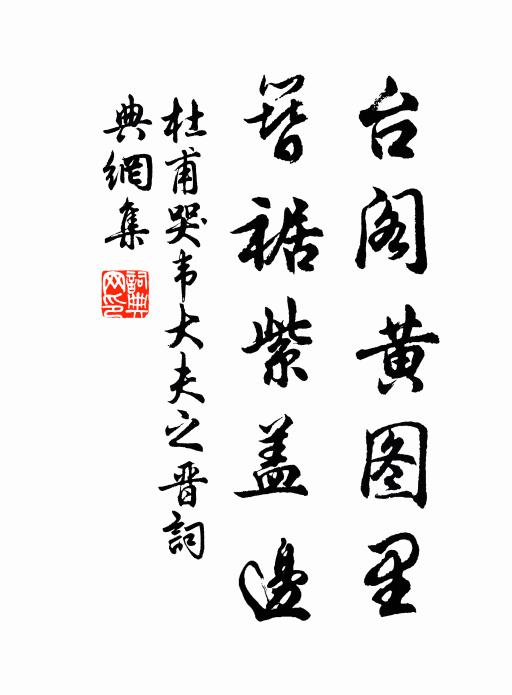 台阁黄图里
簪裾紫盖边
杜甫哭韦大夫之晋詞
典網集
詞典網印